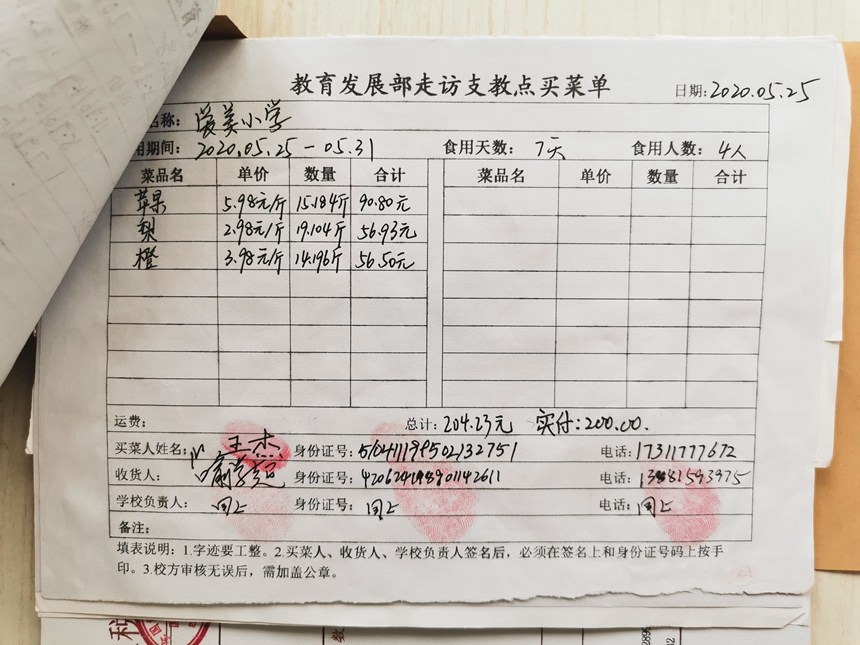 教育发展部走访支教点买菜单
日期:2020.05.25
名称: 爱美小学
用期间: 2020.05.25-05.31 食用天数: 7天 食用人数: 4人
菜品名 单价 数量 合计 菜品名 单价 数量 合计
苹果 5.98元/斤 15.184斤 90.80元
梨 2.98元/斤 19.104斤 56.93元
橙 3.98元/斤 14.196斤 56.50元
运费: 总计: 204.23元 实付:200.00.
买菜人姓名: 王杰 身份证号: 电话: 17311777672
收货人: 身份证号: 电话:
学校负责人: 同上 身份证号: 同上 电话: 同上
备注:
填表说明：1.字迹要工整。2.买菜人、收货人、学校负责人签名后，必须在签名上和身份证号码上按手
印。3.校方审核无误后，需加盖公章。